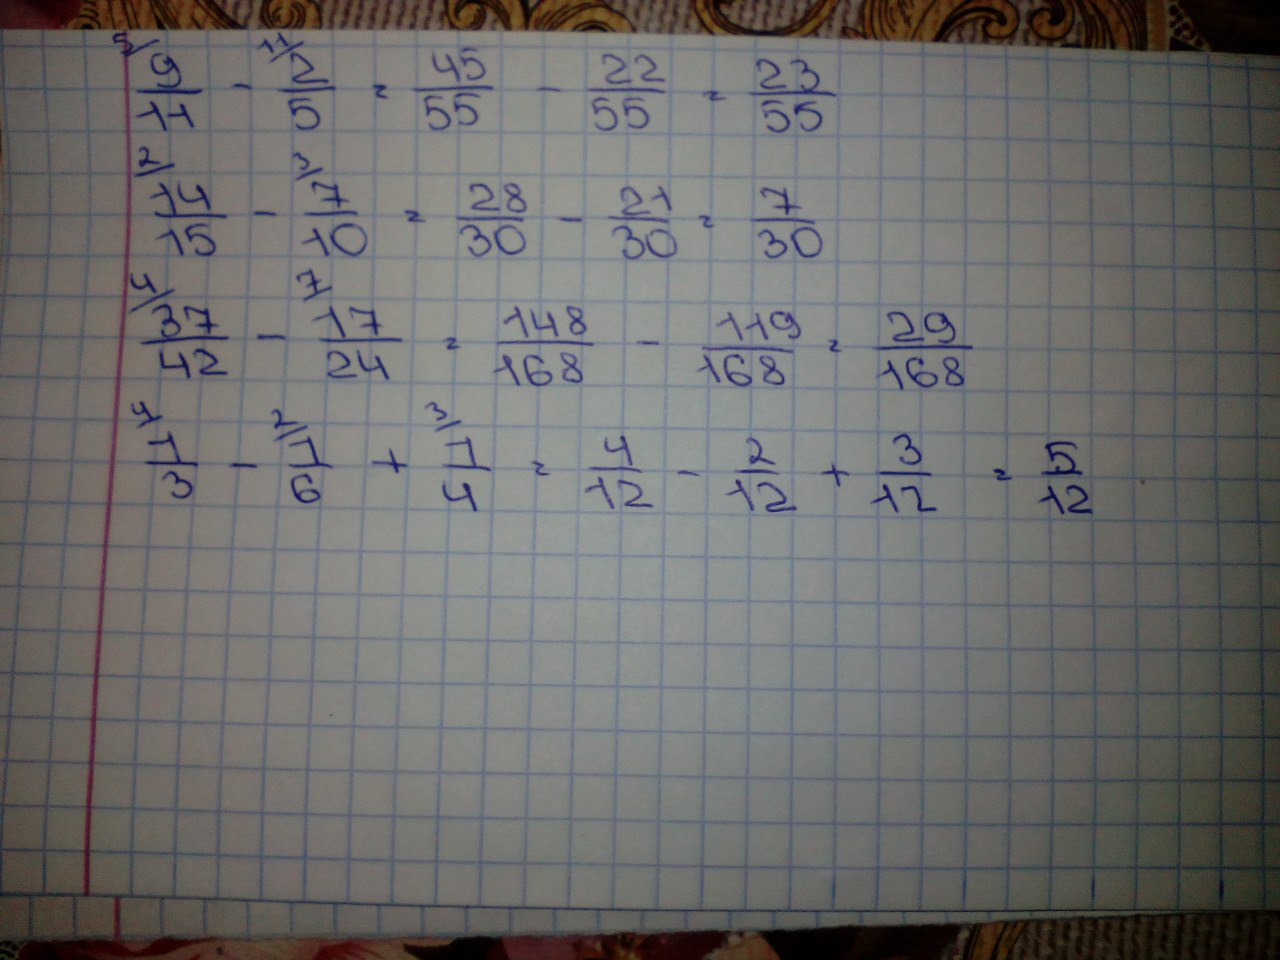 5/ 9/11 - 11/ 2/5 = 45/55 - 22/55 = 23/55
2/ 14/15 - 3/ 7/10 = 28/30 - 21/30 = 7/30
4/ 37/42 - 7/ 17/24 = 148/168 - 119/168 = 29/168
4/ 1/3 - 2/ 1/6 + 3/ 1/4 = 4/12 - 2/12 + 3/12 = 5/12